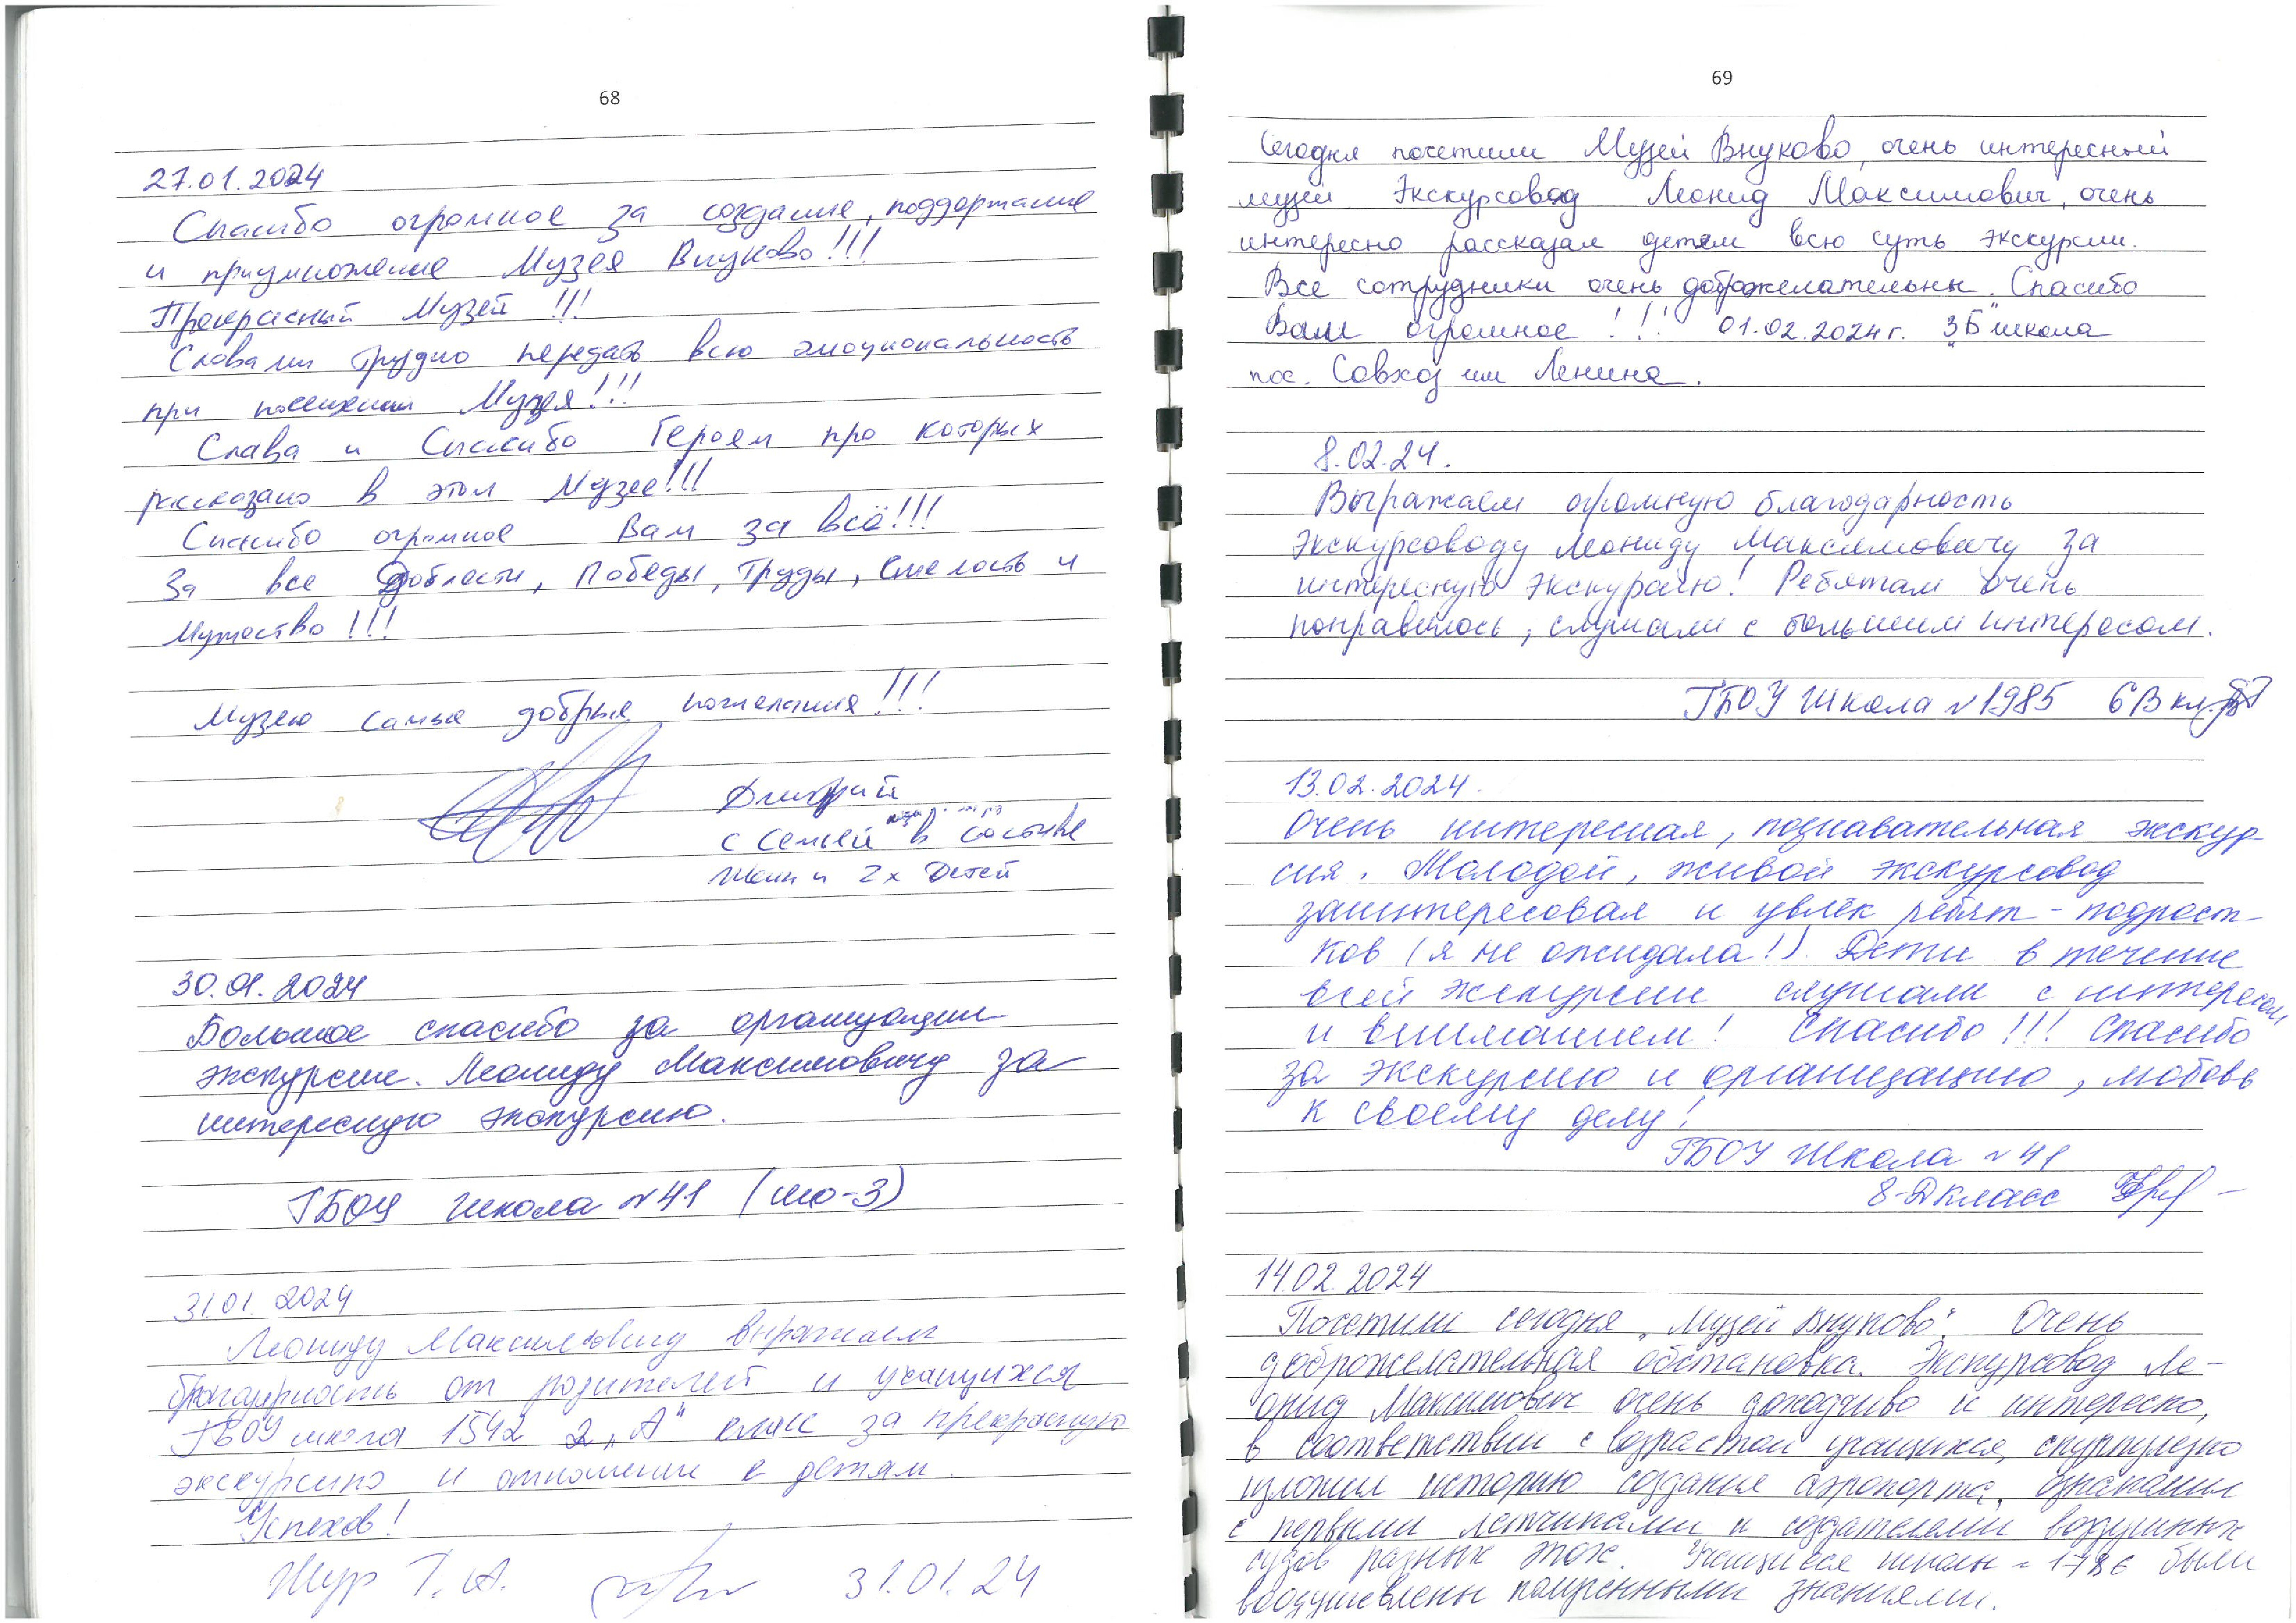 68
27.01.2024
Спасибо огромное за создание, поддержание
и приумножение Музея Внуково!!!
Прекрасный Музей !!!
Словами трудно передать всю эмоциональность
при посещении Музея!!!
Слава и Спасибо Героям про которых
рассказано в этом Музее!!!
Спасибо огромное Вам за всё!!!
За все Доблести, Победы, Труды, Смелость и
Мужество!!!
Музею самые добрые пожелания!!!
Дмитрий
с семьей в составе
жены и 2х детей
30.01.2024
Большое спасибо за организации
экскурсии. Леониду Максимовичу за
интересную экскурсию.
ГБОУ Школа №41 (шо-3)
31.01.2024
Леониду Максимовичу выражаем
благодарность от родителей и учащихся
ГБОУ школа 1542 2 „А" класс за прекрасную
экскурсию и отношение к детям.
Успехов!
Жур Т.А. 31.01.24
69
Сегодня посетили Музей Внуково, очень интересный
музей Экскурсовод Леонид Максимович, очень
интересно рассказал детям всю суть экскурсии.
Все сотрудники очень доброжелательны. Спасибо
Вам огромное !!! 01.02.2024г. „3Б" школа
пос. Совхоз им Ленина.
8.02.24.
Выражаем огромную благодарность
экскурсоводу Леониду Максимовичу за
интересную экскурсию! Ребятам очень
понравилось, слушали с большим интересом.
ГБОУ Школа №1985 6В кл.
13.02.2024.
Очень интересная, познавательная экскур-
сия. Молодой, живой экскурсовод
заинтересовал и увлёк ребят-подрост-
ков (я не ожидала!). Дети в течение
всей экскурсии слушали с интересом
и вниманием! Спасибо!!! Спасибо
за экскурсию и организацию, любовь
к своему делу!
ГБОУ Школа №41
8-Д класс
14.02.2024
Посетили сегодня „Музей Внуково". Очень
доброжелательная обстановка. Экскурсовод Ле-
онид Максимович очень доходчиво и интересно,
в соответствии с возрастом учащихся, скурпулезно
изложил историю создания аэропорта, ознакомил
с первыми летчиками и создателями воздушных
судов разных эпох. Учащиеся школы 1786 были
воодушевлены полученными знаниями.